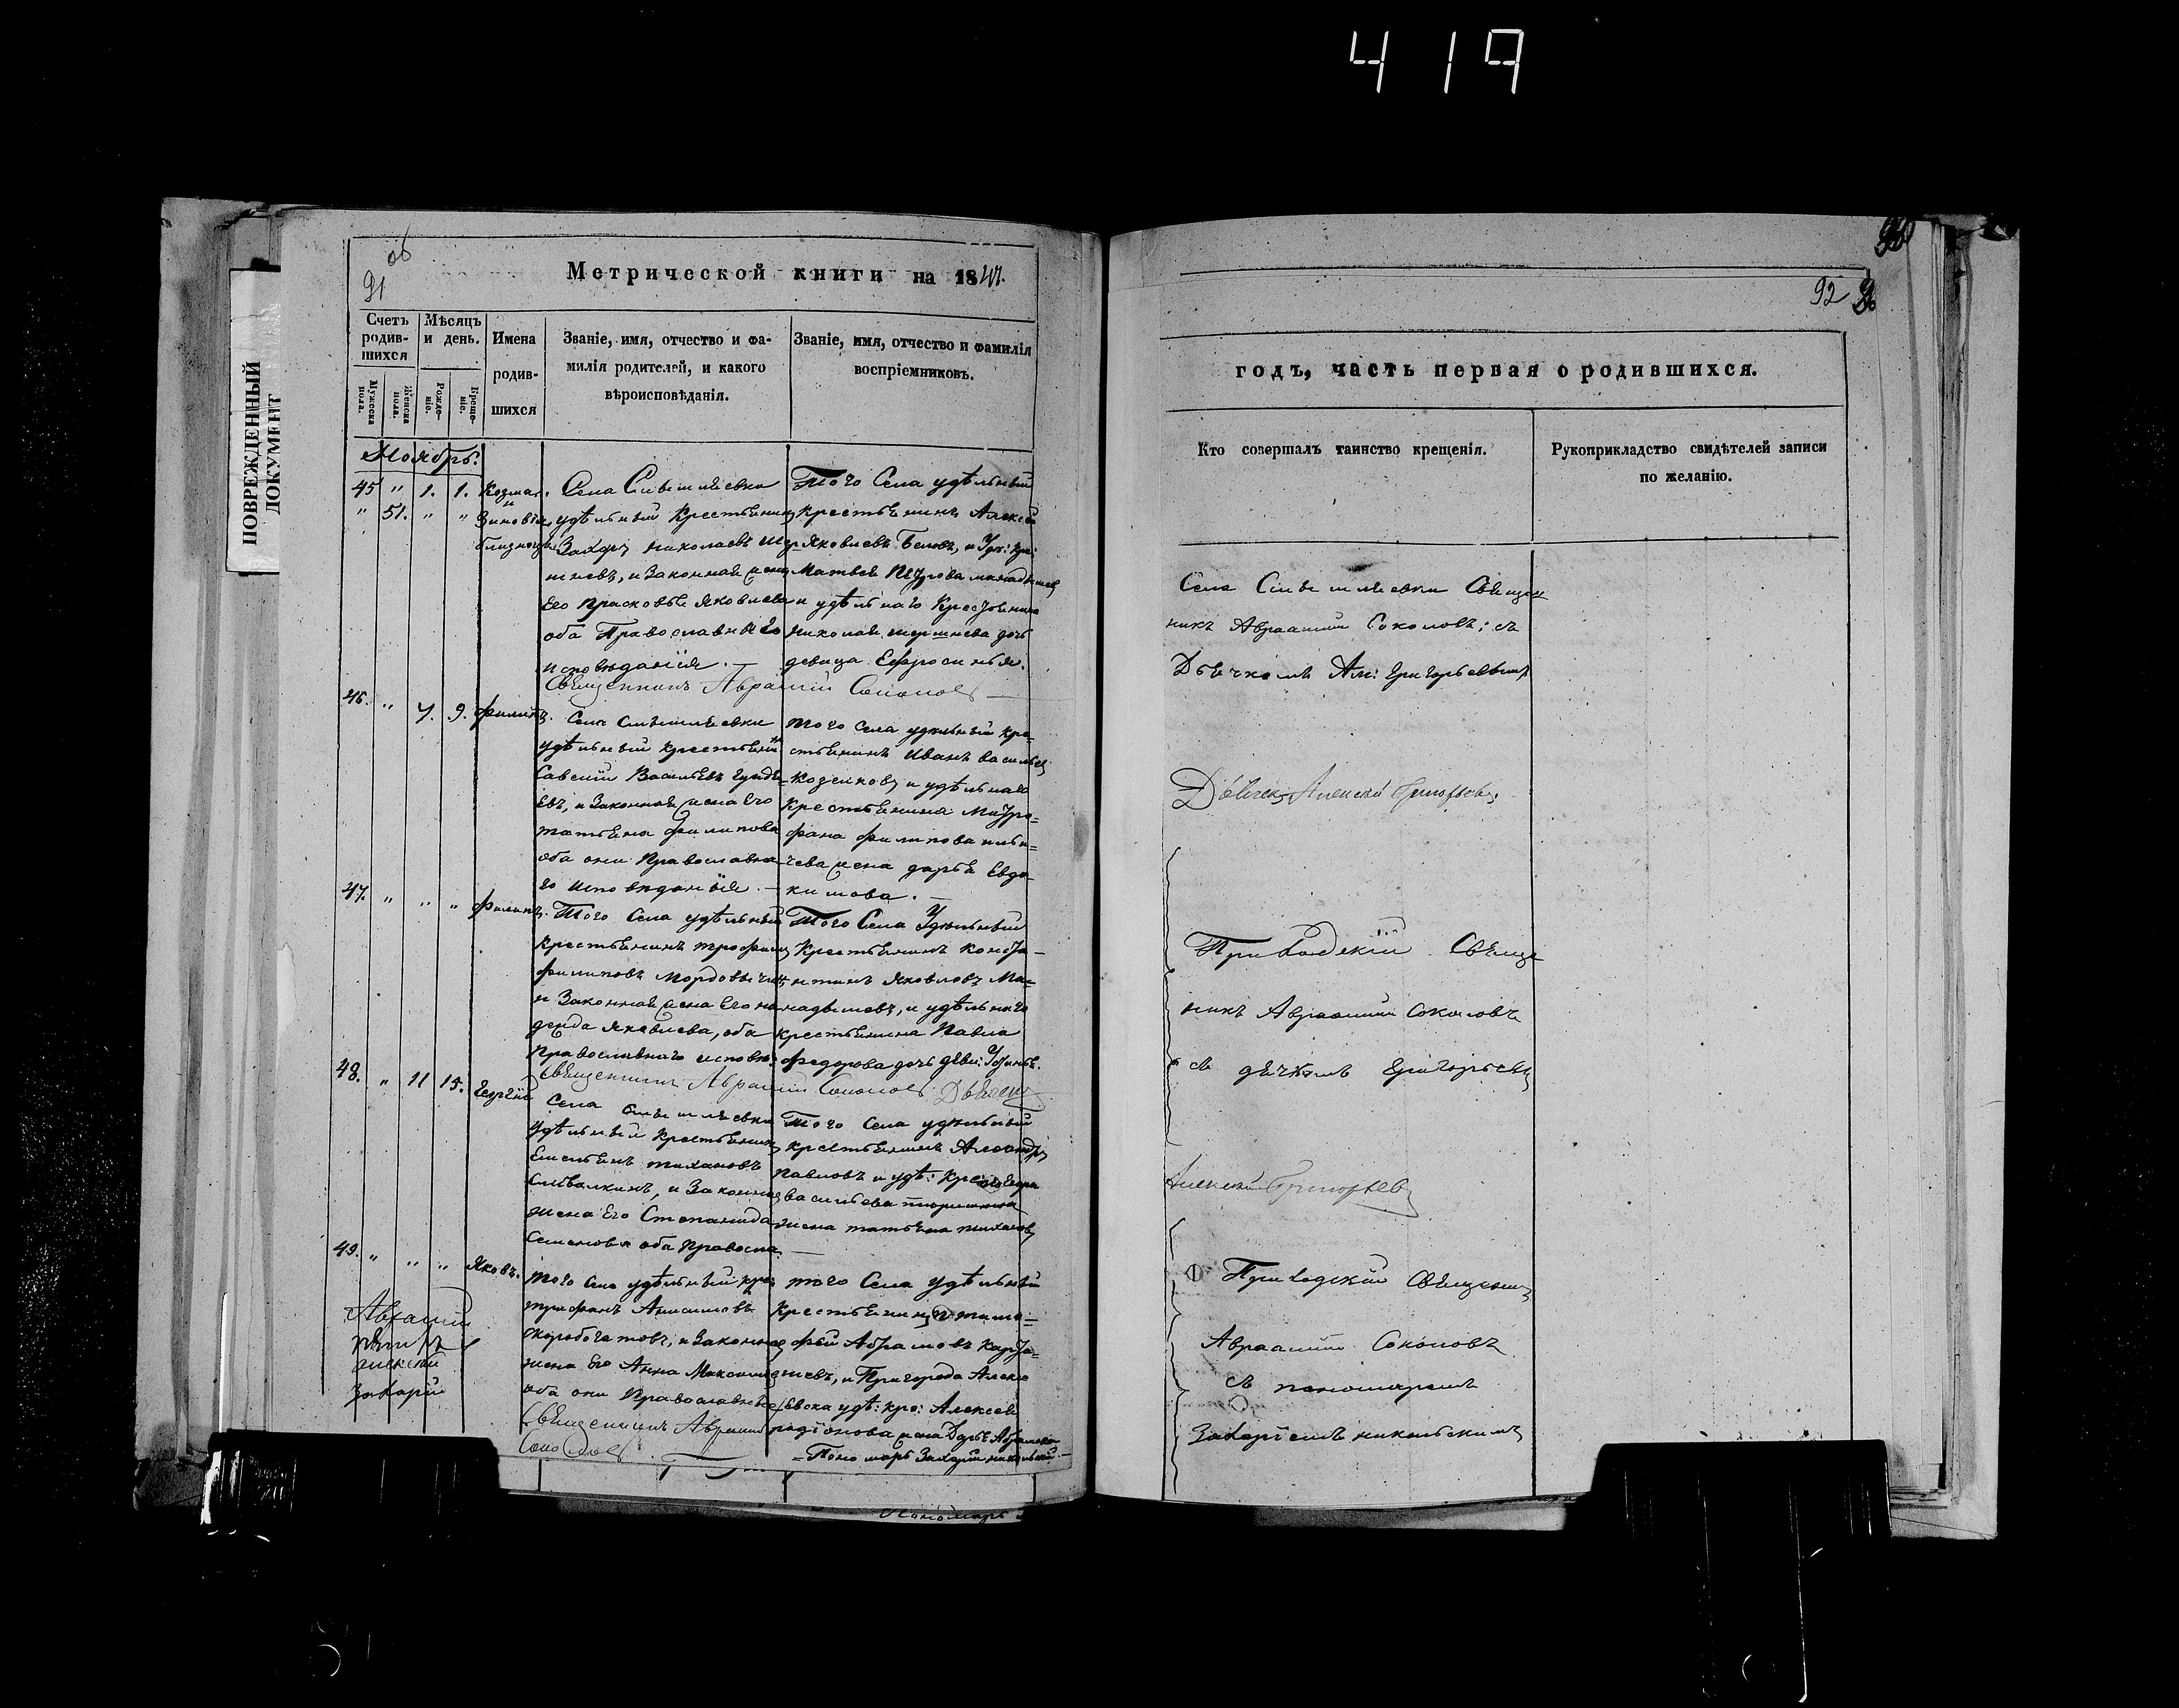 419
ПОВРЕЖДЕННЫЙ
ДОКУМЕНТ
91 об
Метрической книги на 1847.
Счетъ родившихся
Мужеска пола.
Женска пола.
Мѣсяцъ и день.
Рожденіе.
Крещеніе.
Имена
родив-
шихся
Званіе, имя, отчество и фа-
милія родителей, и какого
вѣроисповѣданія.
Званіе, имя, отчество и фамилія
воспріемниковъ.
Ноябрь.
45 " 1. 1. Козма
и
" 51. " " Зиновія
близнецы
Села Сивашлеевки
удѣльный Крестьенинъ
Захаръ Николаевъ
и Законная жена
Его Прасковье Яковлева
оба Православнаго
исповѣданія. —
Священникъ Авраамій Соколовъ —
Того Села удѣльный
крестьенинъ Алексѣй
Яковлевъ Беловъ, и Уд: кре:
Матвея Петрова
и удѣльнаго Крестьенина
Николая дочь
девица Ефросинья.
46. " 7. 9. Филипъ.
Села
удѣльный крестьенинъ
Савелий Васильевъ
евъ, и Законная жена Его
татьена Филипова
оба они Православна-
го исповѣданія. —
того Села удѣльный кре=
стьенинъ Иванъ Васильевъ
Козенковъ и удѣльнаго
Крестьенина Митро=
фана Филипова
чева жена дарье Евдо-
кимова. —
47. " " " Филипъ.
Того Села удѣльный
крестьенинъ трофимъ
Филиповъ
и Законная жена Его на
дежда Яковлева, оба
Православнаго исповѣ:
Священникъ Авраамій Соколовъ
Того Села Удѣльный
Крестьенинъ Конста-
нтинъ Яковловъ Ма=
надышевъ, и удѣльнаго
крестьенина Павла
Федорова дочь деви: Устинье.
Дьячекъ
48. " 11 15. Георгій
Села
Удѣльный крестьенинъ
Емельенъ тихановъ
и Законная
жена Его Степанида
Семеновна оба Правосла.
Того Села удѣльный
крестьенинъ Александръ
Павловъ и удѣ: Крес: Егора
Васильева
жена татьена тиханова
—
49. " " " Яковъ.
Того Села удѣльный кре:
трифанъ Анисимовъ
скоробогатовъ, и Законная
жена Его Анна Максимова
оба они Православные
Священникъ Авраамій
Соколовъ
того Села Удѣльный
крестьенинъ тимо=
фей Абрамовъ Карта=
шевъ, и Пригорода Алекс
евска удѣ: кре: Алексея
родіонова жена Дарье Абрамова
= Пономарь Захарій Никольскій —
Авраамій
алексѣй
Захарій
Пономарь
92
годъ, часть первая о родившихся.
Кто совершалъ таинство крещенія.
Рукоприкладство свидѣтелей записи
по желанію.
Села Священ
никъ Авраамій Соколовъ; съ
Дьечкомъ Ал: Григорьевымъ
Дьячекъ Алексѣй Григорьевъ
Приходскій Свяще
никъ Авраамій Соколовъ
съ дьечкомъ Григорьевы
Алексѣй Григорьевъ
Приходскій Священникъ
Авраамій Соколовъ
съ пономаремъ
Захаріемъ Никольскимъ